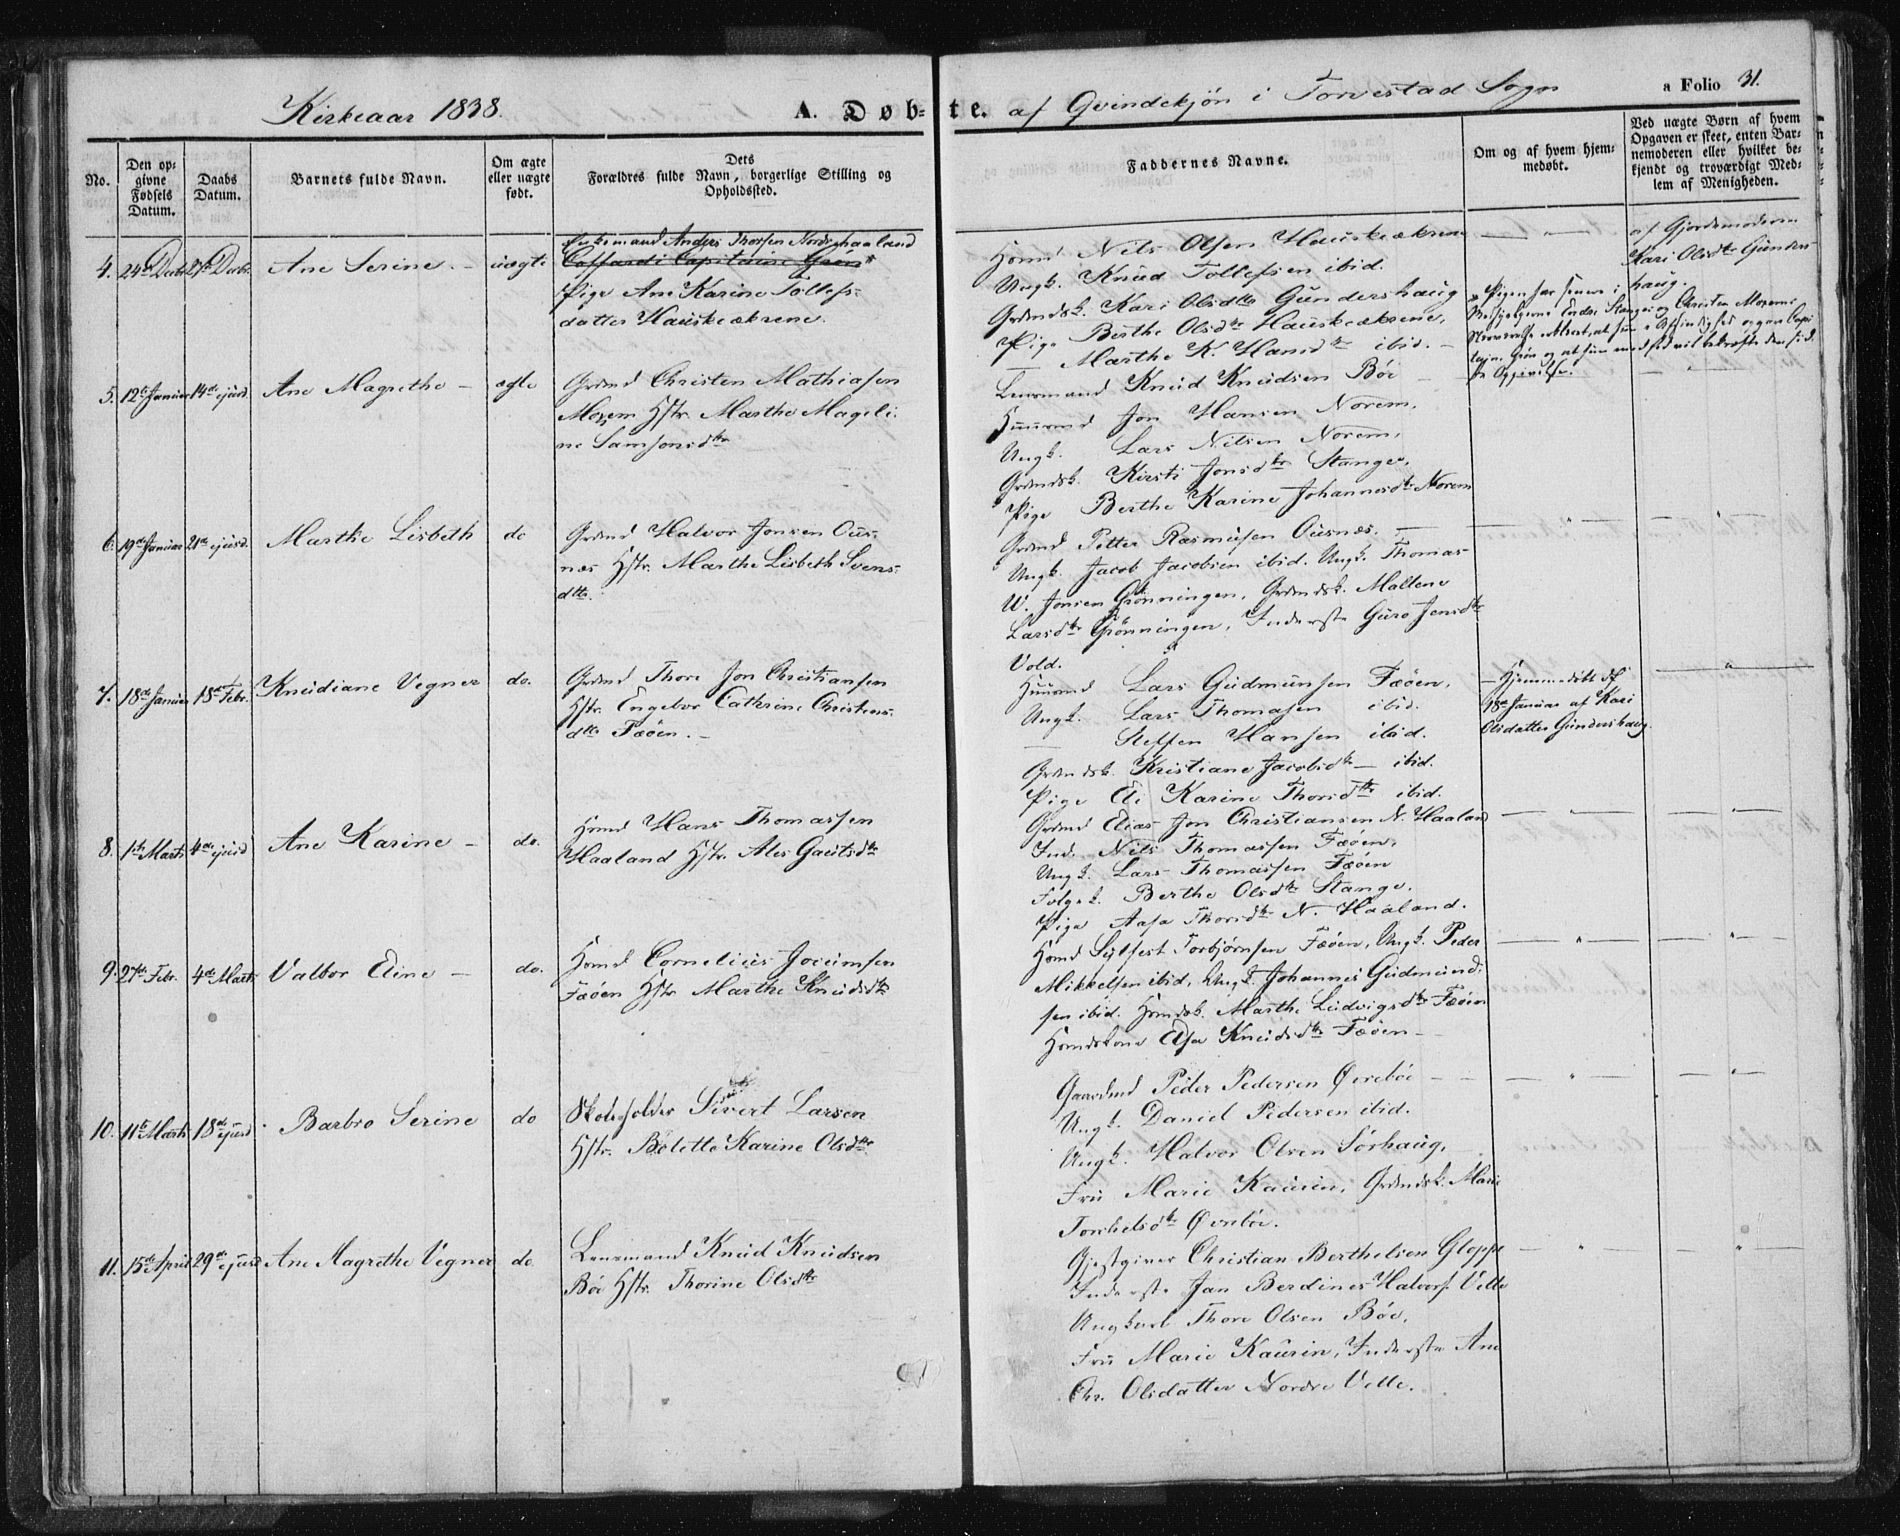 Kirkeaar 1838. A. Døbte. af Qvindekjøn i Torvestad Sogn a Folio 31.
No.
Den op-
givne
Fødsels
Datum.
Daabs
Datum.
Barnets fulde Navn.
Om ægte
eller uægte
født.
Dets
Forældres fulde Navn, borgerlige Stilling og
Opholdssted.
Faddernes Navne.
Om og af hvem hjem-
medøbt.
Ved uægte Børn af hvem
Opgaven er skeet, enten Bar-
nemoderen eller hvilket be-
kjendt og troværdigt Med-
lem af Menigheden.
4. 24de Decbr 27de Decbr. Ane Serine. – uægte
Enkemand Anders Thorsen Nordrehaaland
Coffardi Capitaine Grøn *
Pige Ane Karine Tollefs-
datter Hauskeækrene.
Hsmd Nils Olsen Hauskeækrene
Ungk. Knud Tollefsen ibid.
Grdmdsk. Kari Olsdtr Gundershaug
Pige Berthe Olsdtr Hauskeækrene,
— Marthe K. Hansdtr ibid. –
* Pigen har senere i
Stange og Christen Morem
af Gjordemoderen
Kari Olsdtr Gunders-
haug.
5. 12te Januar 14de ejusd. Ane Magrethe – ægte
Grdmd Christen Mathiasen
Morem Hstr. Marthe Mageli-
ne Samsonsdtr
Lensmand Knud Knudsen Bøe
Huusmd Jon Hansen Norem,
Ungk. Lars Nilsen Norem,
Grdmdsk. Kirsti Jonsdtr Stange,
Pige Berthe Karine Johannesdtr Norem
6. 19de Januar 21de ejusd. Marthe Lisbeth do
Grdmd Halvor Jonsen Ous-
næs Hstr. Marthe Lisbeth Svens-
dtr.
Grdmd Petter Rasmusen Ousnæs. —
Ungk. Jacob Jacobsen ibid. Ungk. Thomas
W. Jonsen Grønningen, Grdmdsk. Maltene
Larsdtr Grønningen, Inderste Guro Jensdtr
Vold.
7. 18de Januar 18de Febr. Knudiane Vegner do.
Grdmd Thore Jon Christiansen
Hstr. Engebor Cathrine Christens-
dtr Fæøen. –
Huusmd Lars Gudmunsen Fæøen,
Ungk. Lars Thomasen ibid.
— Steffen Hansen ibid.
Grdmdsk. Kristiane Jacobsdtr – ibid.
Pige Eli Karine Thorsdtr ibid.
– Hjemmedøbt d.
18de Januar af Kari
Olsdatter Gundershaug.
8. 1ste Marts 4de ejusd Ane Karine – do.
Hsmd Hans Thomassen
Haaland Hstr. Ales Gautsdtr
Grdmd Elias Jon Christiansen N. Haaland
Ind. Nils Thomassen Fæøen,
Ungk. Lars Thomassen Fæøen
Folgek. Berthe Olsdtr Stange.
Pige Aasa Thorsdtr N. Haaland.
9. 27de Febr. 4de Marts Valbor Eline – do.
Hsmd Cornelius Jocumsen
Fæøen Hstr Marthe Knudsdtr
Hsmd Sylfest Torbjørnsen Fæøen, Ungk. Peder
Mikkelsen ibid, Ungk. Johannes Gudmund-
sen ibid. Hsmdsk. Marthe Ludvigsdtr Fæøen
Hsmdskone Elsa Knudsdtr Fæøen –
10. 11te Marts 18de ejusd Barbro Serine do
Skoleholder Sivert Larsen
Hstr. Bolette Karine Olsdtr
Gaardmd Peder Pedersen Øvrebøe
Ungk. Daniel Pedersen ibid.
Ungk. Halvor Olsen Sørhaug,
Fru Marie Kaurin, Grdmdsk. Mari
Torkelsdtr Øvrebøe.
11. 15de April 29de ejusd Ane Magrethe Vegner do
Lensmand Knud Knudsen
Bøe Hstr. Thorine Olsdtr
Gjestgiver Christian Berthelsen Gloppe
Inderste Jan Berdines Halvors. Velle
Ungkarl Thore Olsen Bøe,
Fru Marie Kaurin, Inderste Ane
Chr. Olsdatter Nordre Velle.